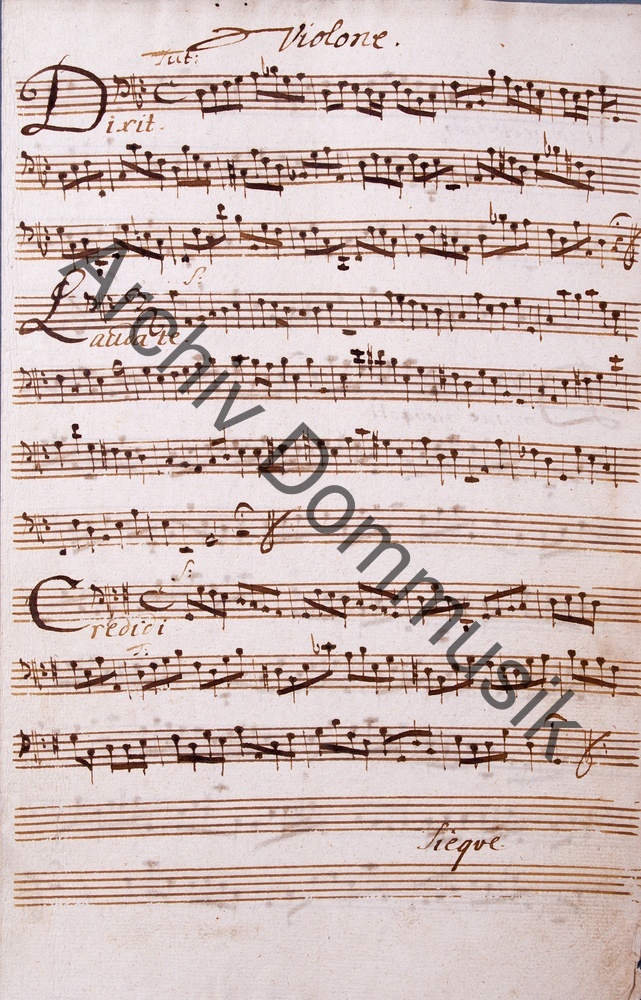 Violone.
Tut:
Dixit.
S:
Laudate
S:
Credidi
T:
Sieque
Archiv Dommusik